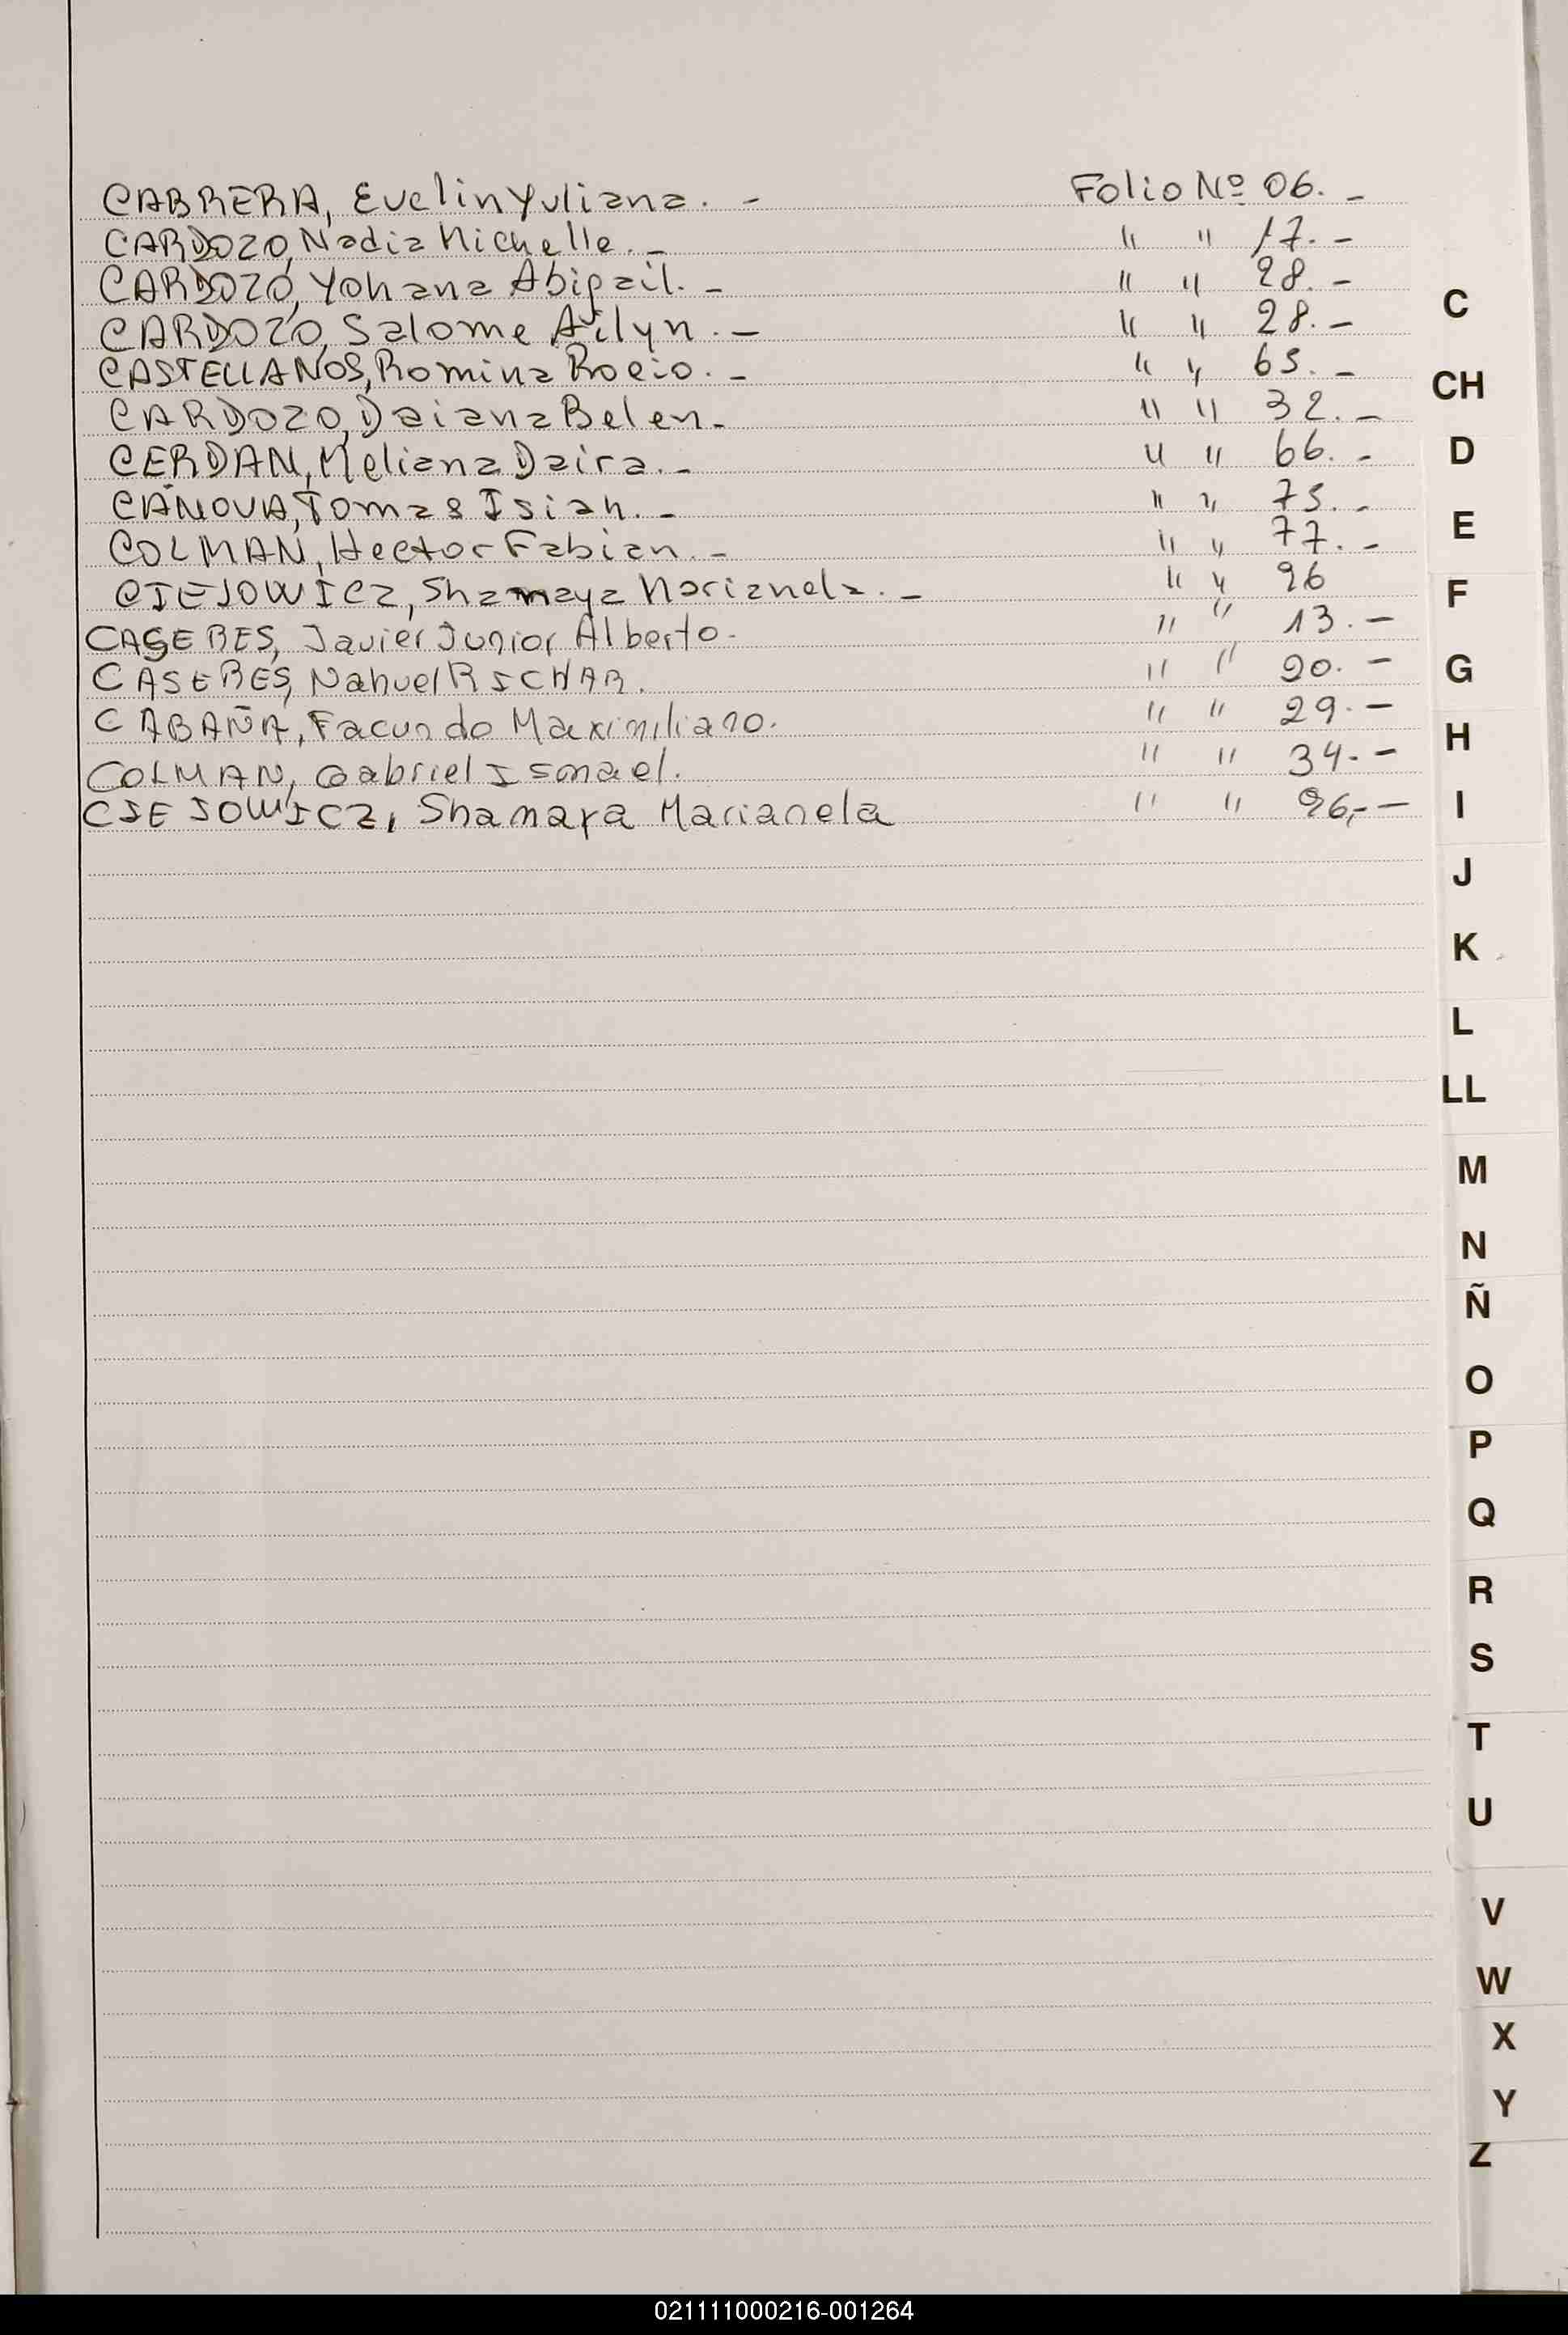 CABRERA, Evelin Yuliana. - Folio Nº 06. -
CARDOZO, Nadia Michelle. - " " 17. -
CARDOZO, Yohana Abigail. - " " 28. -
CARDOZO, Salome Ailyn. - " " 28. -
CASTELLANOS, Romina Rocio. - " " 65. -
CARDOZO, Daiana Belen. " " 32. -
CERDAN, Meliana Daira. - " " 66. -
CAÑOVA, Tomas Isiah. - " " 75. -
COLMAN, Hector Fabian. - " " 77. -
CIEJOWICZ, Shamaya Marianela. - " " 96
CASERES, Javier Junior Alberto. " " 13. -
CASERES, Nahuel RICHAR. " " 20. -
CABAÑA, Facundo Maximiliano. " " 29. -
COLMAN, Gabriel Ismael. " " 34. -
CIEJOWICZ, Shamaya Marianela " " 96, -
C
CH
D
E
F
G
H
I
J
K
L
LL
M
N
Ñ
O
P
Q
R
S
T
U
V
W
X
Y
Z
021111000216-001264